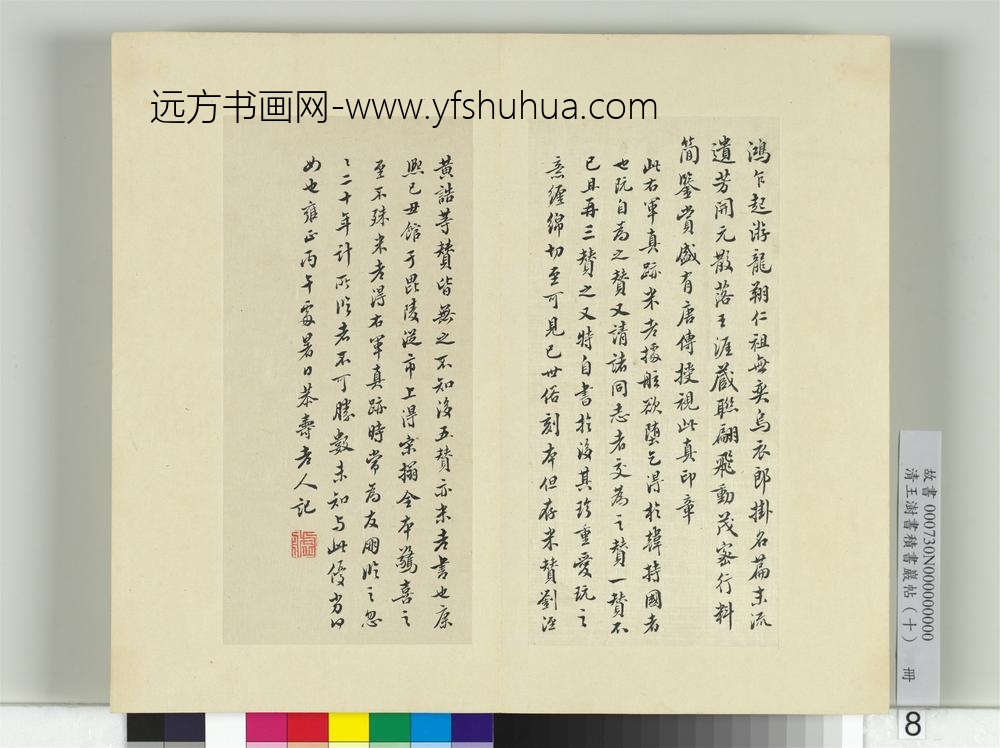 远方书画网-www.yfshuhua.com
鴻乍起游龍翔仁祖無奕烏衣郎掛名篇末流
遺芳開元散落王涯藏聯翩飛動茂密行料
簡鑒賞盛有唐傳授視此真印章
此右軍真跡米老據舷欲墮乞得於韓持國者
也既自為之贊又請諸同志者交為之贊一贊不
已且再三贊之又特自書於後其珍重愛玩之
意纏綿切至可見已世俗刻本但存米贊劉涇
黃誥等贊皆無之不知後五贊亦米老書也康
熙己丑館于毘陵從市上得宋搨全本驚喜之
至不殊米老得右軍真跡時常為友朋臨之忽
二十年計所臨者不可勝數未知與此優劣何
如也雍正丙午處暑日恭壽老人記
故書000730N000000000
清王澍書積書巖帖（十） 冊
8